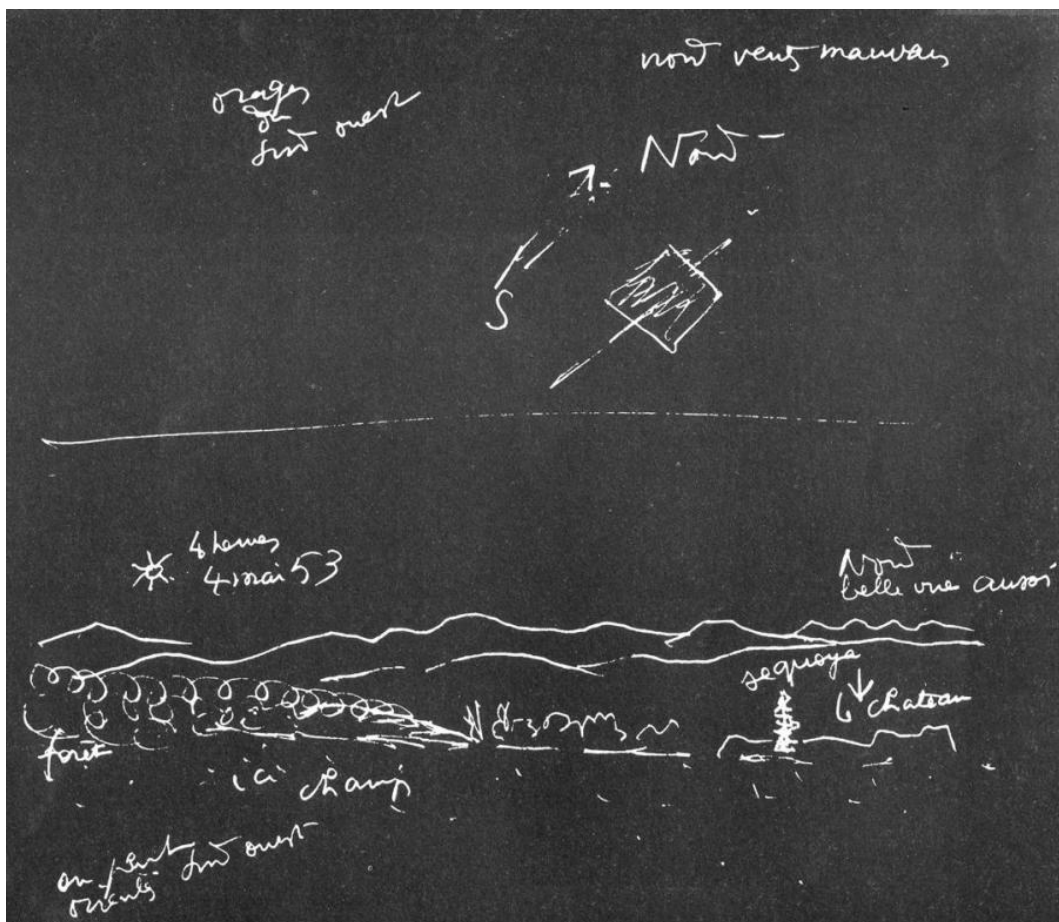 nord vent mauvais
orages
du
sud ouest
Nord
S
4 mai 53
Nord
belle vue aussi
sequoya
chateau
foret
ici champ
on peut
sud ouest